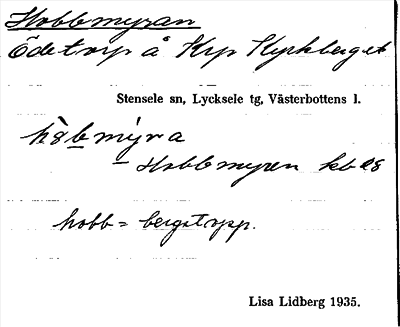 Hobbmyran
Ödetorp å Krp Kyrkberget
Stensele sn, Lycksele tg, Västerbottens l.
hòbmýra
– Hobbmyren
hobb = bergstopp.
Lisa Lidberg 1935.